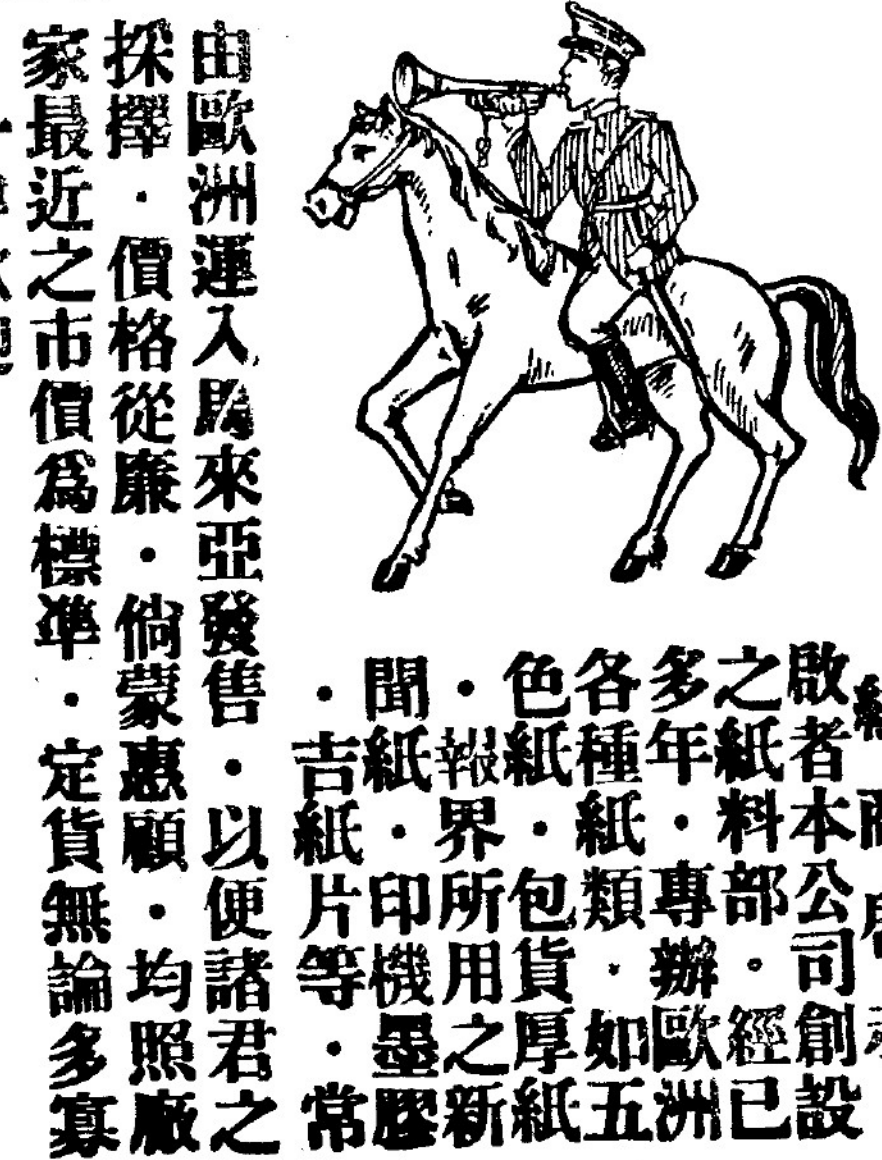 啟者本公司創設
之紙料部。經已
多年・專辦歐洲
各種紙類・如五
色紙・包貨厚紙
・報界所用之新
聞紙・印機墨膠
・吉紙片等・常
由歐洲運入馬來亞發售・以便諸君之
採擇・價格從廉・倘蒙惠顧・均照廠
家最近之市價爲標準・定貨無論多寡